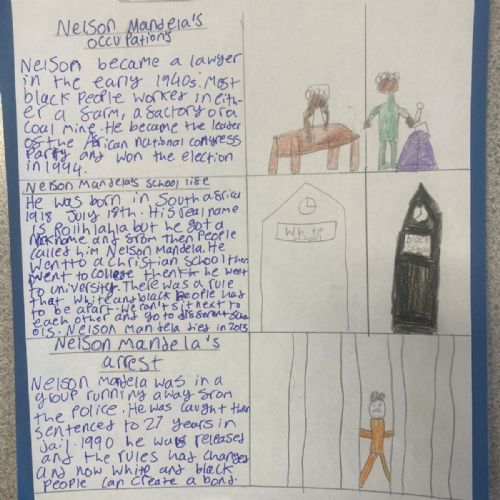 Nelson Mandela's
occupations
Nelson became a lawyer
in the early 1940s. Most
black People worked in eith-
er a farm, a factory or a
coal mine. He became the leader
of the African national congress
Party and won the election
in 1994.
Nelson Mandela's school life
He was born in South africa
1918 July 18th. His real name
is Rolihlahla but he got a
nickname and from then People
called him Nelson Mandela. He
went to a christian school then
went to college then he went
to university. There was a rule
that White and black People had
to be apart. We can't sit next to
each other and go to different scho
ols. Nelson Mandela died in 2013
White
school
black
school
Nelson Mandela's
arrest
Nelson mandela was in a
group running away from
the police. He was caught then
sentenced to 27 years in
jail. 1990 he was released
and the rules has changed
and now white and black
People can create a bond.